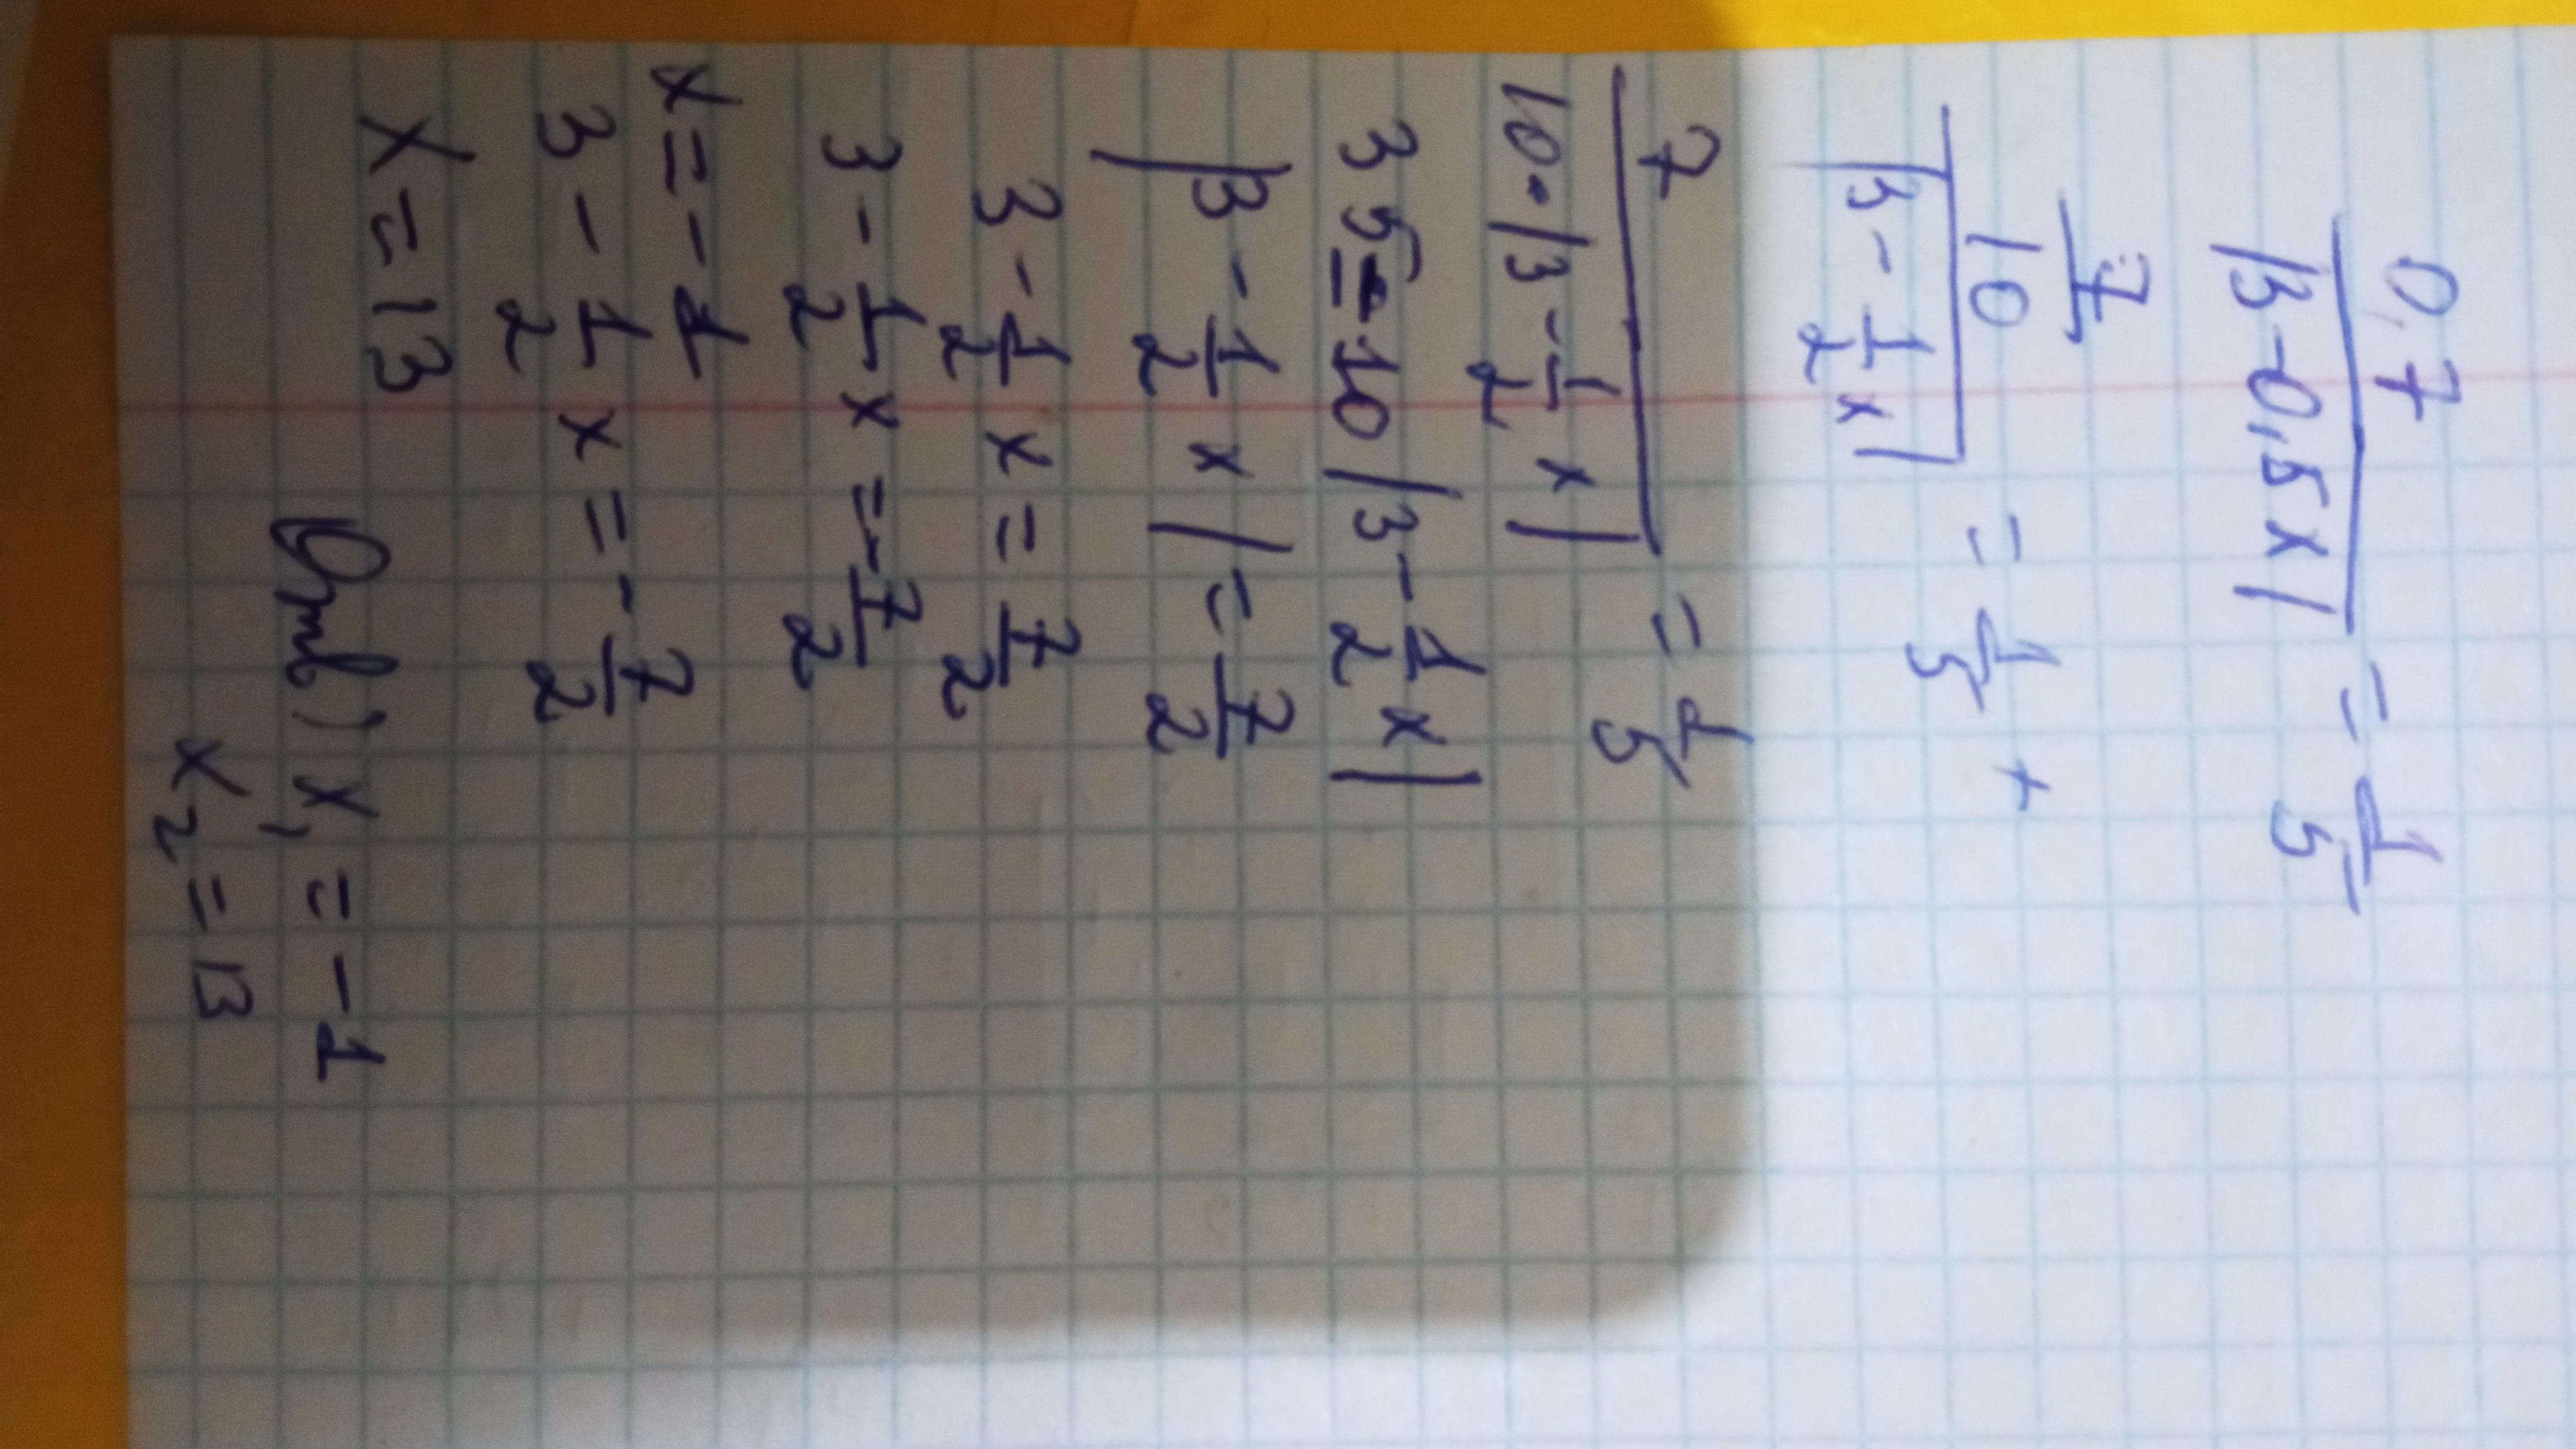 0,7 / |3-0,5x| = 1/5
7/10 / |3 - 1/2 x| = 1/5 +
7 / 10·|3 - 1/2 x| = 1/5
35=10|3 - 1/2 x|
|3 - 1/2 x| = 7/2
3 - 1/2 x = 7/2
3 - 1/2 x = -7/2
x = -1
3 - 1/2 x = -7/2
x = 13
Отв) x₁ = -1
x₂ = 13